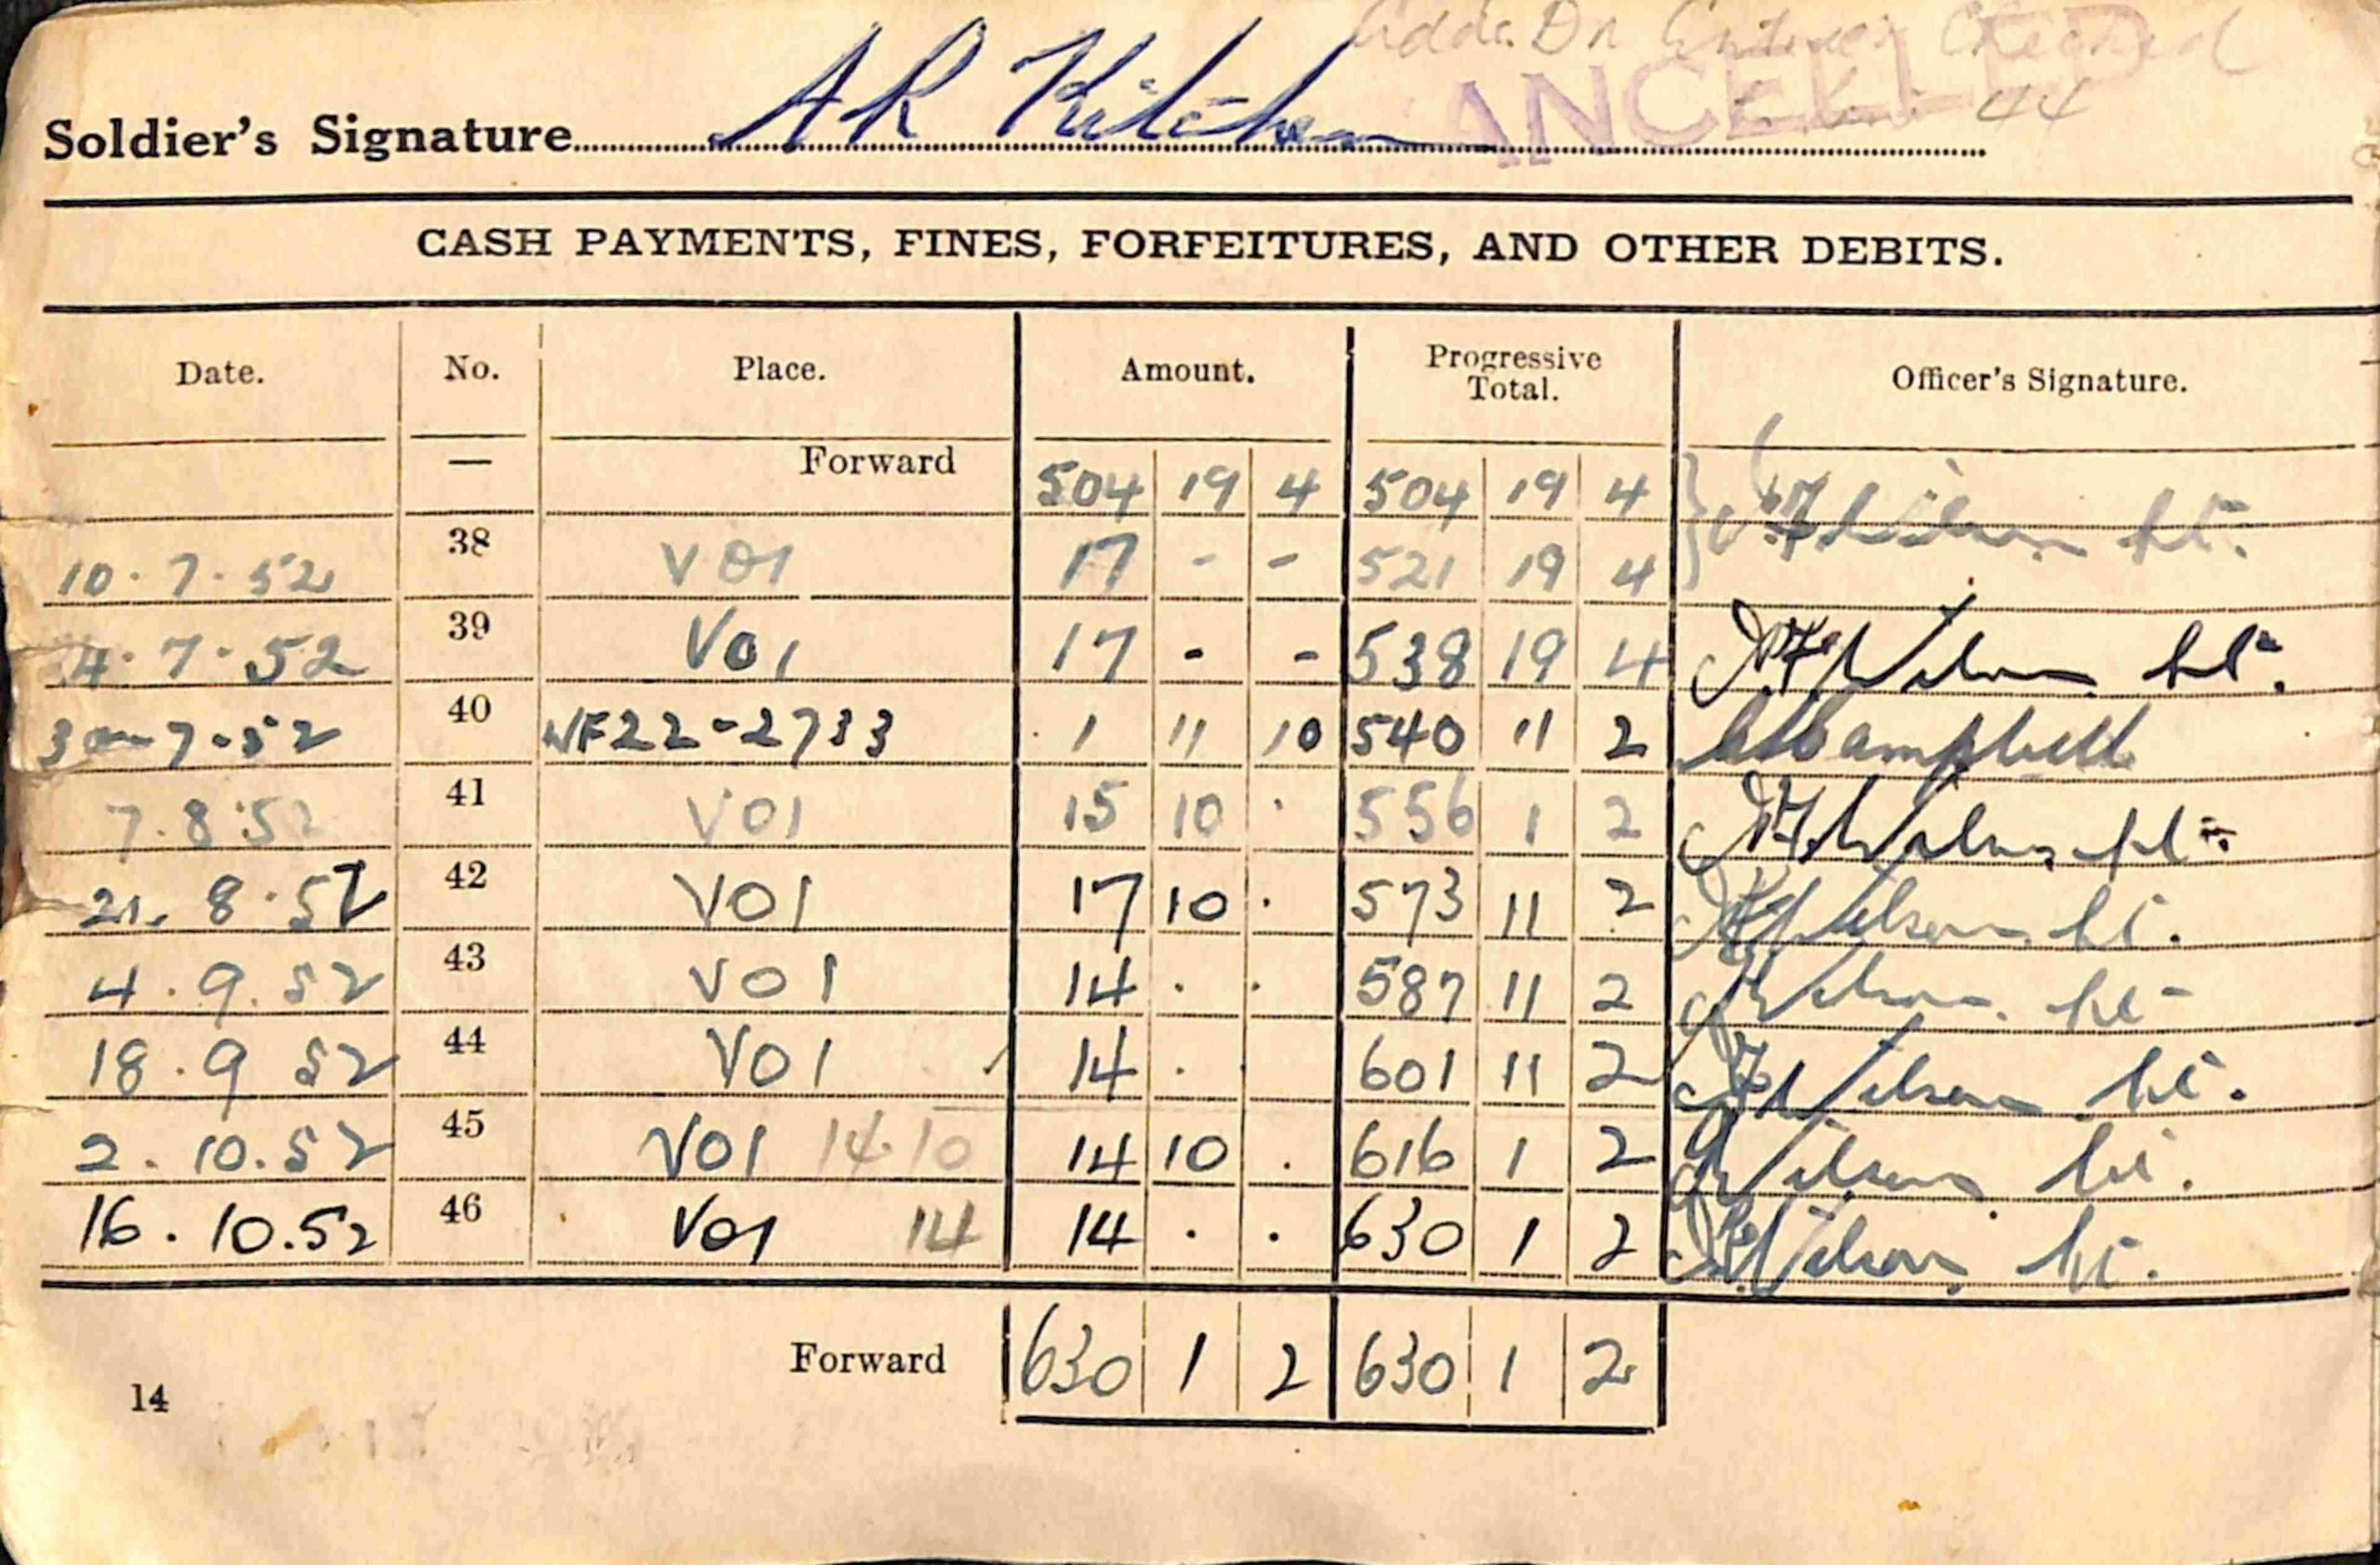 Adds. Dr Entries Checked
ANCELLED
44
Soldier's Signature AR Kitchen
CASH PAYMENTS, FINES, FORFEITURES, AND OTHER DEBITS.
Date. No. Place. Amount. Progressive Total. Officer's Signature.
— Forward 504 19 4 504 19 4
10.7.52 38 V01 17 - - 521 19 4 Wilson Lt.
4.7.52 39 V01 17 - - 538 19 4 Wilson Lt.
7.52 40 WF22-2733 1 11 10 540 11 2 Campbell
7.8.52 41 V01 15 10 . 556 1 2 Wilson Lt.
21.8.52 42 V01 17 10 . 573 11 2 Wilson Lt.
4.9.52 43 V01 14 . . 587 11 2 Wilson Lt
18.9 52 44 V01 14 . . 601 11 2 Wilson Lt.
2.10.52 45 V01 14 10 14 10 . 616 1 2 Wilson Lt.
16.10.52 46 V01 14 14 . . 630 1 2 Wilson Lt.
Forward 630 1 2 630 1 2
14